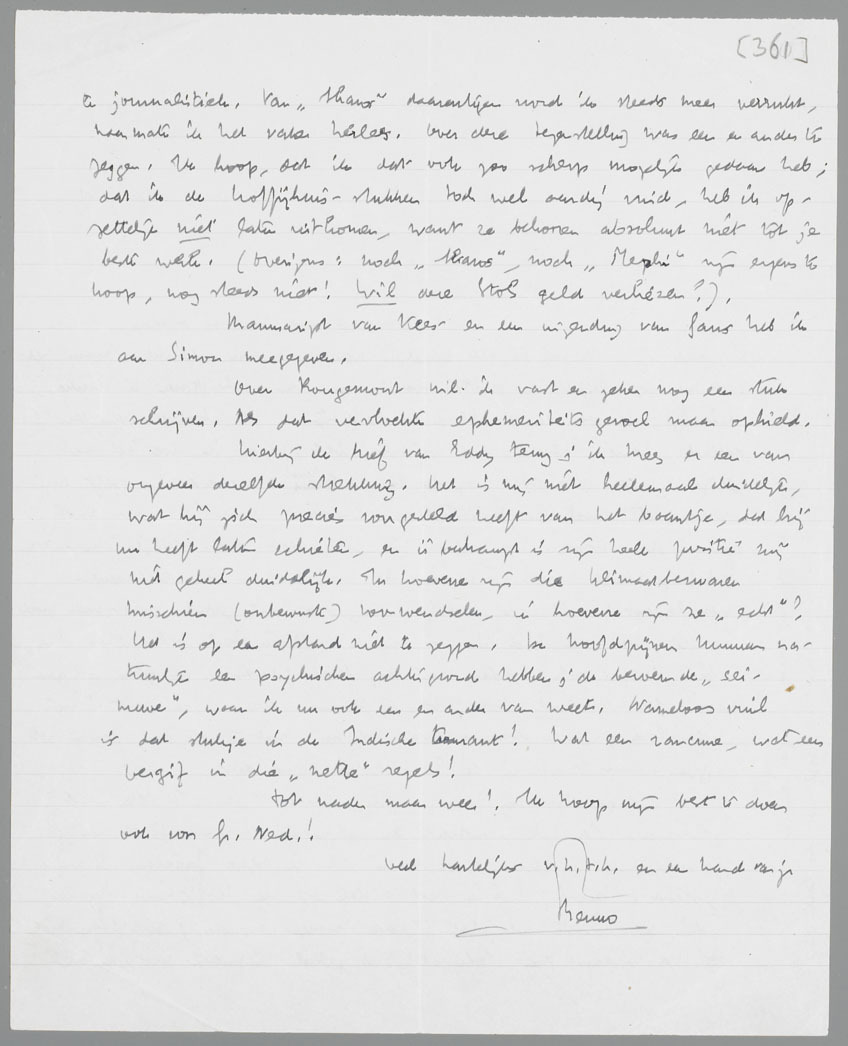 [361]
te journalistiek. Van „Thans” daarentegen word ik steeds meer verrukt,
naarmate ik het vaker herlees. Over deze tegenstelling was een en ander te
zeggen. Ik hoop, dat ik dat ook zoo scherp mogelijk gedaan heb;
dat ik de hoffijhuis-stukken toch wel aardig vind, heb ik op-
zettelijk niet laten uitkomen, want ze behooren absoluut niét tot je
beste werk. (Overigens: noch „Thans”, noch „Mephi” zijn ergens te
koop, nog steeds niet! Wil deze Stols geld verliezen?).
Manuscript van Kees en een inzending van Gans heb ik
aan Simon meegegeven.
Over Rougemont wil ik vast en zeker nog een stuk
schrijven. Als dat vervloekte ephemeriteitsgevoel maar ophield.
Hierbij de brief van Eddy terug; ik kreeg er een van
ongeveer dezelfde strekking. Het is mij niet heelemaal duidelijk,
wat hij zich precies voorgesteld heeft van het baantje, dat hij
nu heeft laten schieten, en überhaupt is zijn heele positie mij
niet geheel duidelijk. In hoeverre zijn die klimaatbezwaren
misschien (onbewust) voorwendselen, in hoeverre zijn ze „echt”?
Het is op een afstand niet te zeggen. De hoofdpijnen kunnen na-
tuurlijk een psychischen achtergrond hebben; de beroemde „zei-
nuwe”, waar ik nu ook een en ander van weet. Namelloos vuil
is dat stukje in de Indische Courant! Wat een rancune, wat een
vergif in die „nette” regels!
Tot nader maar weer! Ik hoop mijn best te doen
ook voor Gr. Ned.!
Veel hartelijks v.h.t.h. en een hand van je
Menno